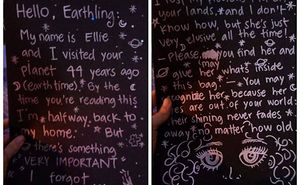 Hello, Earthling.
My name is Ellie
and I visited your
planet 44 years ago
(earth time). By the
time you're reading this
I'm halfway back to
my home. But
there's something
VERY IMPORTANT
I forgot
your lands, and I don't
know how, but she's just
very elusive all the time!
Please, you find her and
give her what's inside
this bag. You may
recognize her because her
are out of your world
her shining never fades
away no matter how old